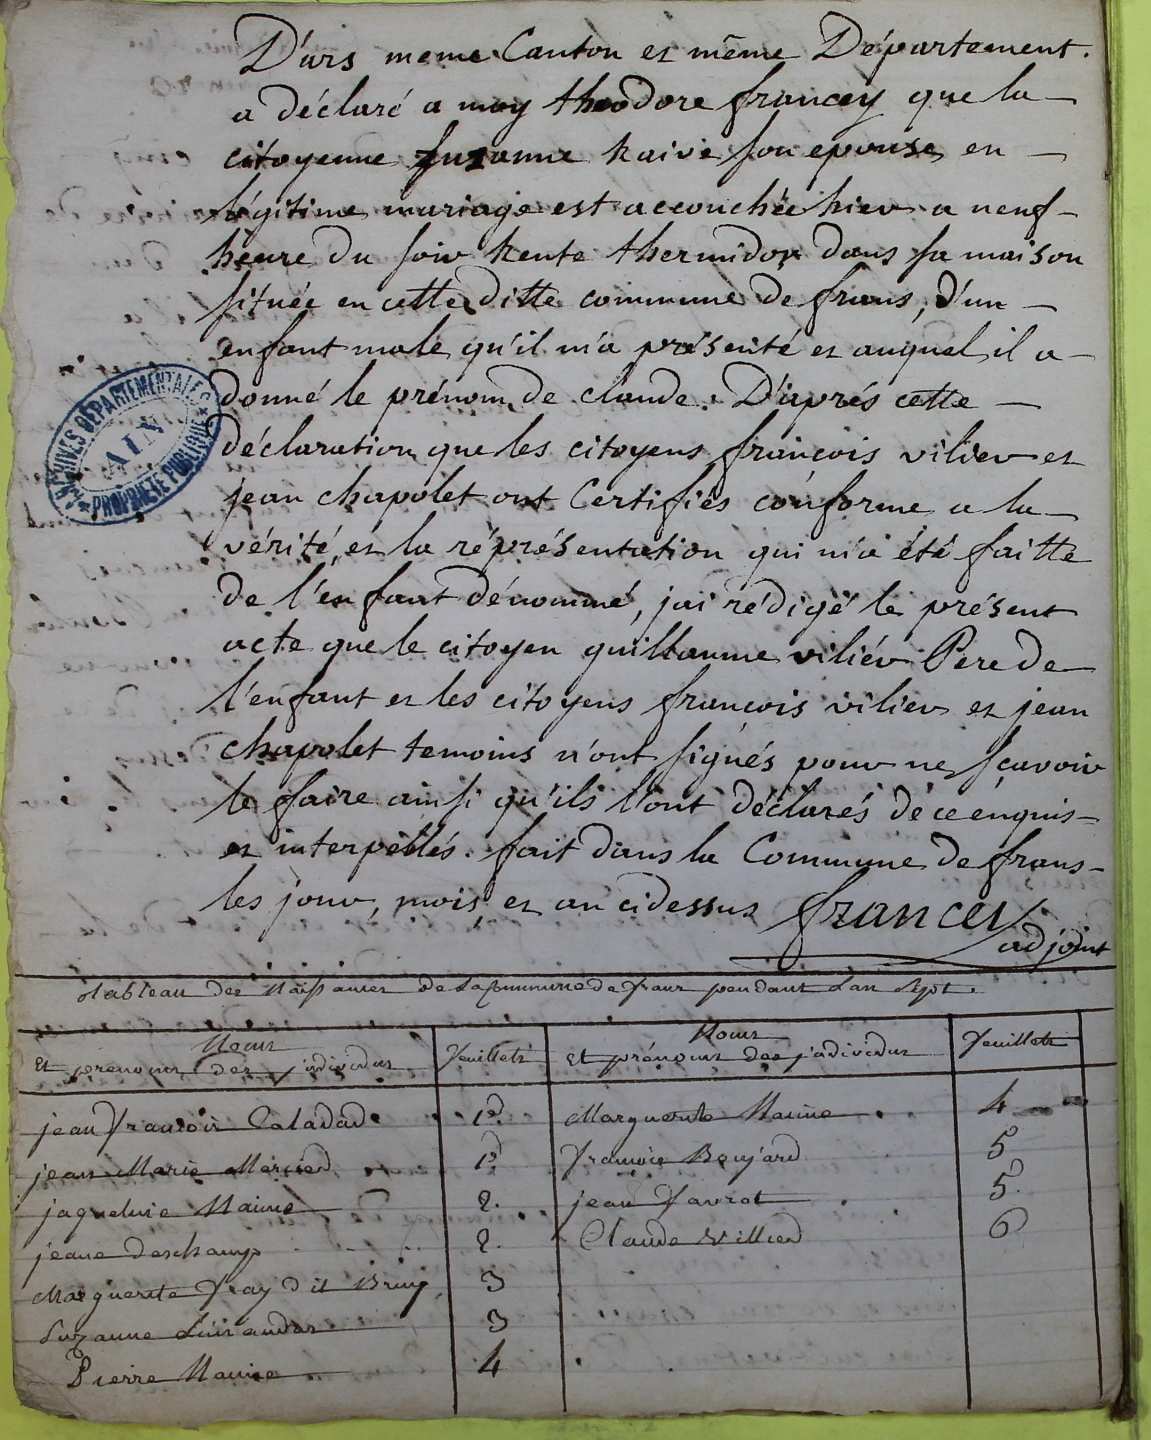 D'ars meme Canton et même Département.
a déclaré a moy théodore francey que la
citoyenne suzanne Raive son epouse en
légitime mariage est accouchée hier a neuf
heure du soir trente thermidor dans sa maison
située en cette ditte commune de frans, d'un
enfant male qu'il m'a présenté et auquel il a
donné le prénom de claude. D'aprés cette
déclaration que les citoyens françois vilier et
jean chapolet ont Certifiés conforme a la
vérité, et la réprésentation qui m'a été faitte
de l'enfant dénommé, jai rédigé le présent
acte que le citoyen guillaume viliér Pere de
l'enfant et les citoyens françois vilier et jean
chapolet temoins n'ont signés pour ne sçavoir
le faire ainsi qu'ils l'ont déclarés de ce enquis
et interpellés. fait dans la Commune de frans
les jour, mois et an cidessus francey
adjoint
ARCHIVES DÉPARTEMENTALES
AIN
PROPRIÉTÉ PUBLIQUE
tableau des Naissances de La Commune de frans pendant L'an Sept.
Noms
Et prenoms des jndividus
feuillets
Noms
Et prénoms des jndividus
feuillets
jean françois 1er. Marguerite 4
jean Marie Mercier 1er françois Bonjard 5
jaqueline 2. jean favrot 5.
jeane deschamp 2. Claude Villier 6
Marguerite fray dit 3
Suzanne 3
Pierre 4